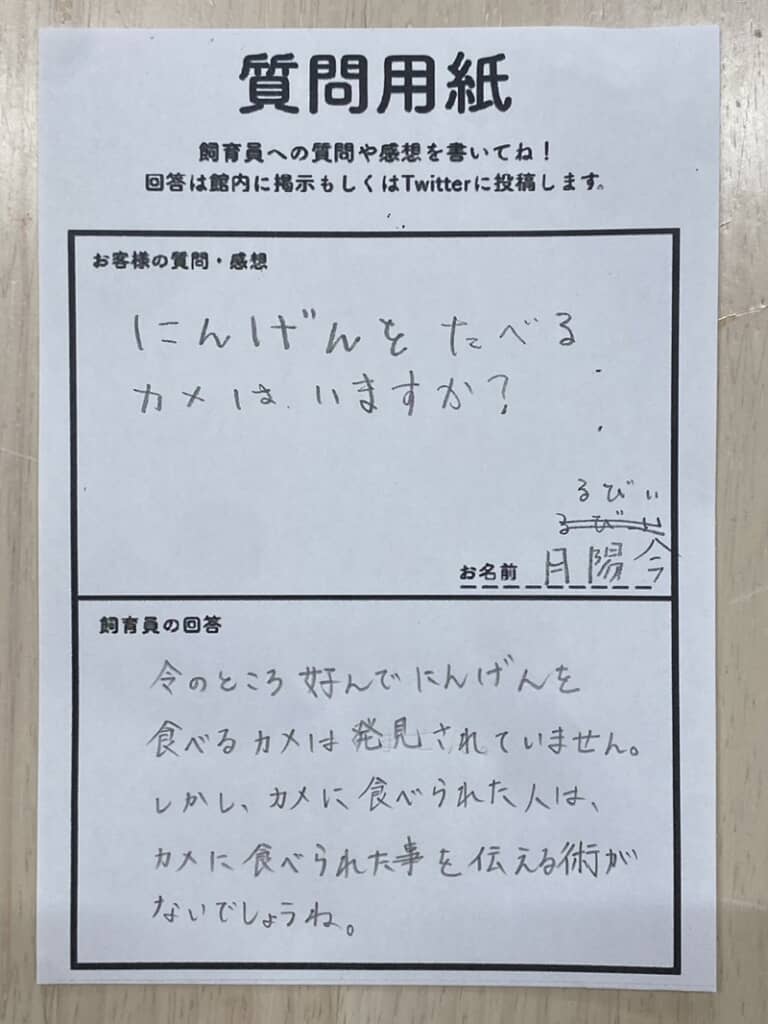 質問用紙
飼育員への質問や感想を書いてね！
回答は館内に掲示もしくはTwitterに投稿します。
お客様の質問・感想
にんげんを たべる
カメは いますか?
るびい
るびい
お名前 月陽令
飼育員の回答
今のところ好んでにんげんを
食べるカメは発見されていません。
しかし、カメに食べられた人は、
カメに食べられた事を伝える術が
ないでしょうね。